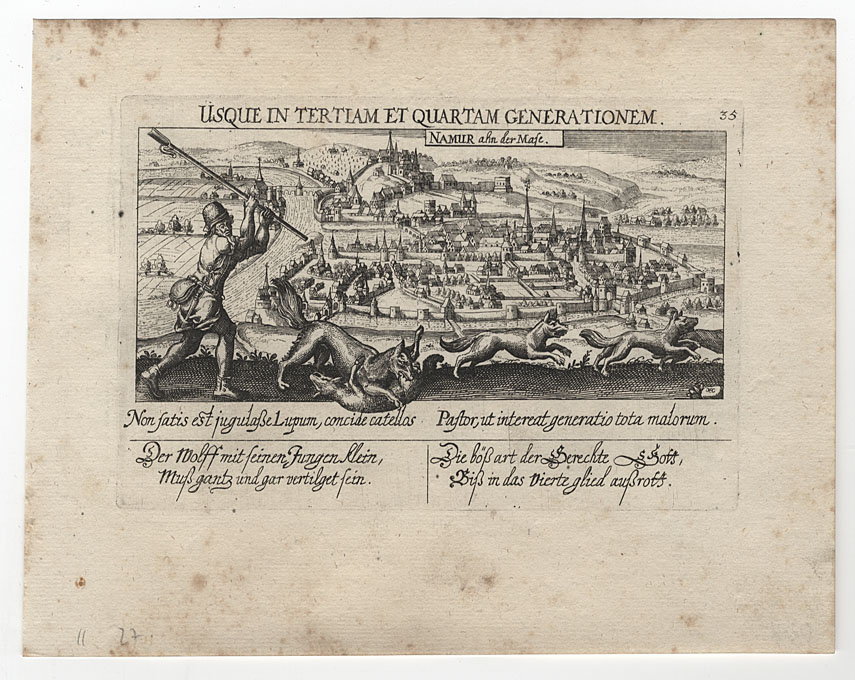 ÜSQUE IN TERTIAM ET QUARTAM GENERATIONEM.
35
NAMUR ahn der Mase.
Non satis est jugulaße Lupum, concide catellos Pastor, ut intereat generatio tota malorum.
Der Wolff mit seinen Jungen klein,
Muß gantz und gar vertilget sein.
Die böß art der Gerechte Gott,
Biß in das vierte glied außrott.
11 27